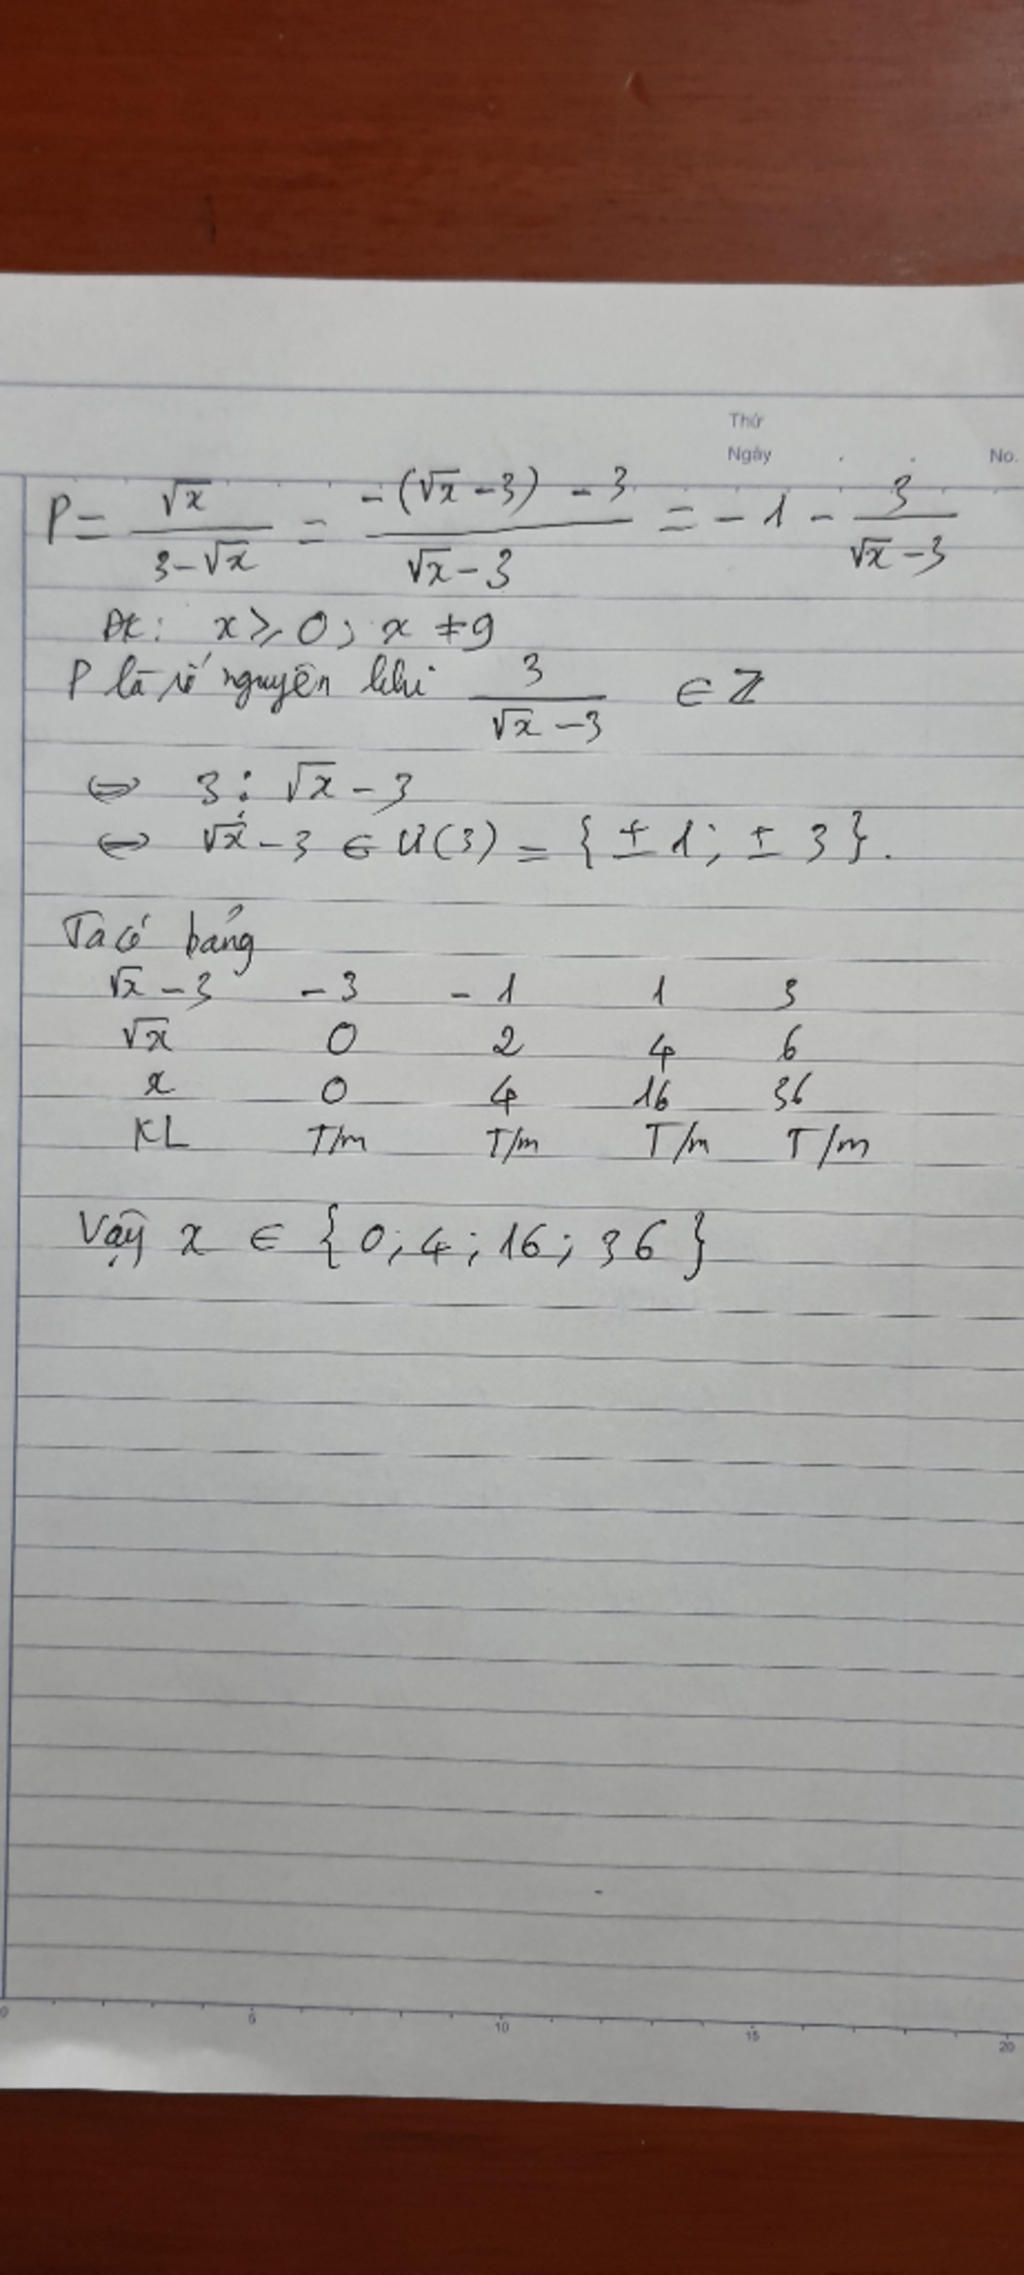 Thứ
Ngày . . No.
P = √x / (3 - √x) = (-(√x - 3) - 3) / (√x - 3) = -1 - 3 / (√x - 3)
ĐK: x ≥ 0; x ≠ 9
P là số nguyên khi 3 / (√x - 3) ∈ Z
⇔ 3 ⋮ √x - 3
⇔ √x - 3 ∈ Ư(3) = {±1; ±3}.
Ta có bảng
√x - 3 -3 -1 1 3
√x 0 2 4 6
x 0 4 16 36
KL T/m T/m T/m T/m
Vậy x ∈ {0; 4; 16; 36}
0 5 10 15 20